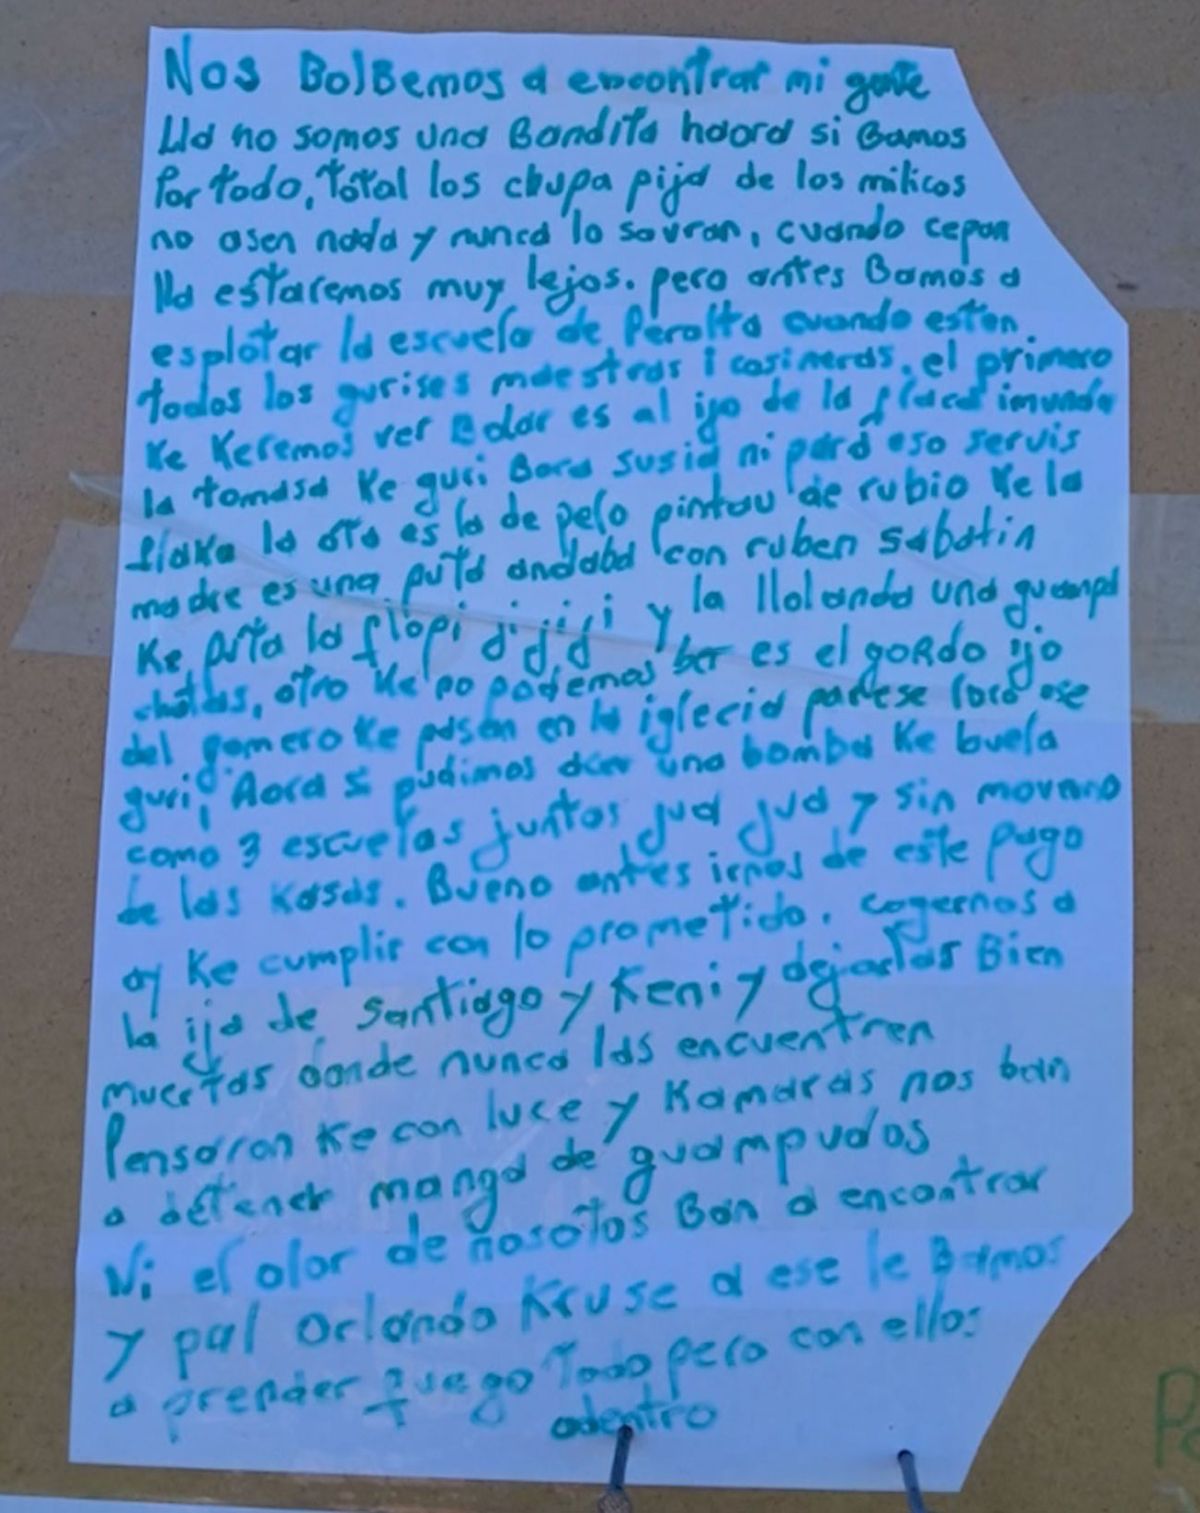 Nos BolBemos a encontrar mi gente
Lla no somos una Bandita haora si Bamos
Por todo, total los chupa pija de los milicos
no asen nada y nunca lo savran, cuando cepan
lla estaremos muy lejos. pero antes Bamos a
esplotar la escuela de Peralta cuando esten
todos los gurises maestras i cosineras. el primero
Ke Keremos ver Bolar es al ijo de la flaca imunda
la tomasa Ke guri Bora susia ni para eso servis
flaka la ota es la de pelo pintau de rubio Ke la
madre es una puta andaba con ruben sabatin
Ke puta la flopi ji jiji y la llolanda una guampa
chotas, otro Ke po podemos ber es el goRdo ijo
del gomero Ke pasan en la iglecia parese loro ese
guri, Aora si pudimos una bomba Ke buela
como 3 escuelas juntas jua jua y sin movano
de las Kasas. Bueno antes irnos de este pago
ay Ke cumplir con lo prometido. cogernos a
la ija de Santiago y Keni y dejarlas Bien
muertas donde nunca las encuentren
Pensaron Ke con luce y Kamaras nos ban
a detener manga de guampudos
Ni el olor de nosotos Ban a encontrar
y pal Orlando Kruse a ese le Bamos
a prender fuego Todo pero con ellos
adentro